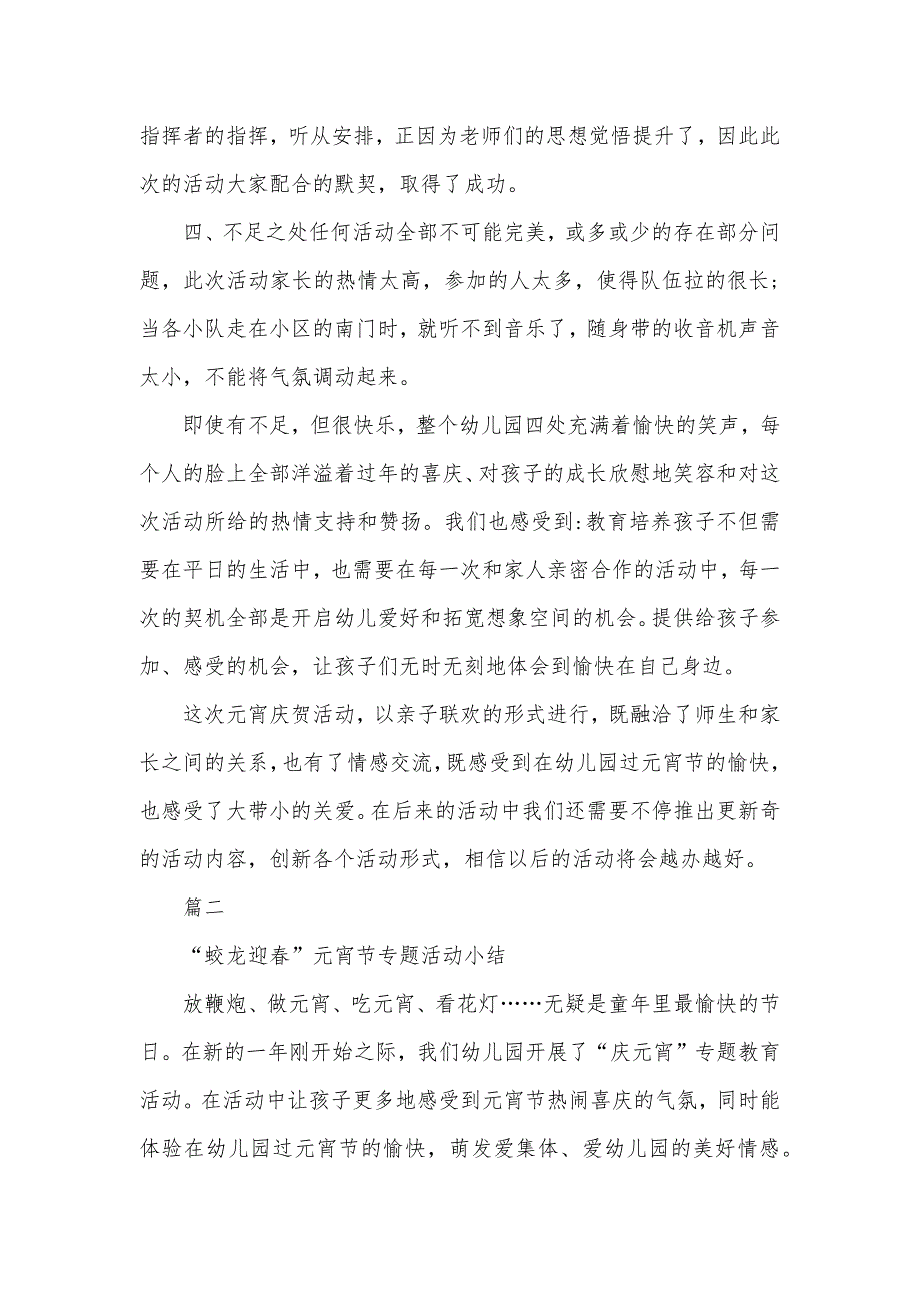 指挥者的指挥，听从安排，正因为老师们的思想觉悟提升了，因此此
次的活动大家配合的默契，取得了成功。
四、不足之处任何活动全部不可能完美，或多或少的存在部分问
题，此次活动家长的热情太高，参加的人太多，使得队伍拉的很长；
当各小队走在小区的南门时，就听不到音乐了，随身带的收音机声音
太小，不能将气氛调动起来。
即使有不足，但很快乐，整个幼儿园四处充满着愉快的笑声，每
个人的脸上全部洋溢着过年的喜庆、对孩子的成长欣慰地笑容和对这
次活动所给的热情支持和赞扬。我们也感受到:教育培养孩子不但需
要在平日的生活中，也需要在每一次和家人亲密合作的活动中，每一
次的契机全部是开启幼儿爱好和拓宽想象空间的机会。提供给孩子参
加、感受的机会，让孩子们无时无刻地体会到愉快在自己身边。
这次元宵庆贺活动，以亲子联欢的形式进行，既融洽了师生和家
长之间的关系，也有了情感交流，既感受到在幼儿园过元宵节的愉快，
也感受了大带小的关爱。在后来的活动中我们还需要不停推出更新奇
的活动内容，创新各个活动形式，相信以后的活动将会越办越好。
篇二
“蛟龙迎春”元宵节专题活动小结
放鞭炮、做元宵、吃元宵、看花灯……无疑是童年里最愉快的节
日。在新的一年刚开始之际，我们幼儿园开展了“庆元宵”专题教育
活动。在活动中让孩子更多地感受到元宵节热闹喜庆的气氛，同时能
体验在幼儿园过元宵节的愉快，萌发爱集体、爱幼儿园的美好情感。